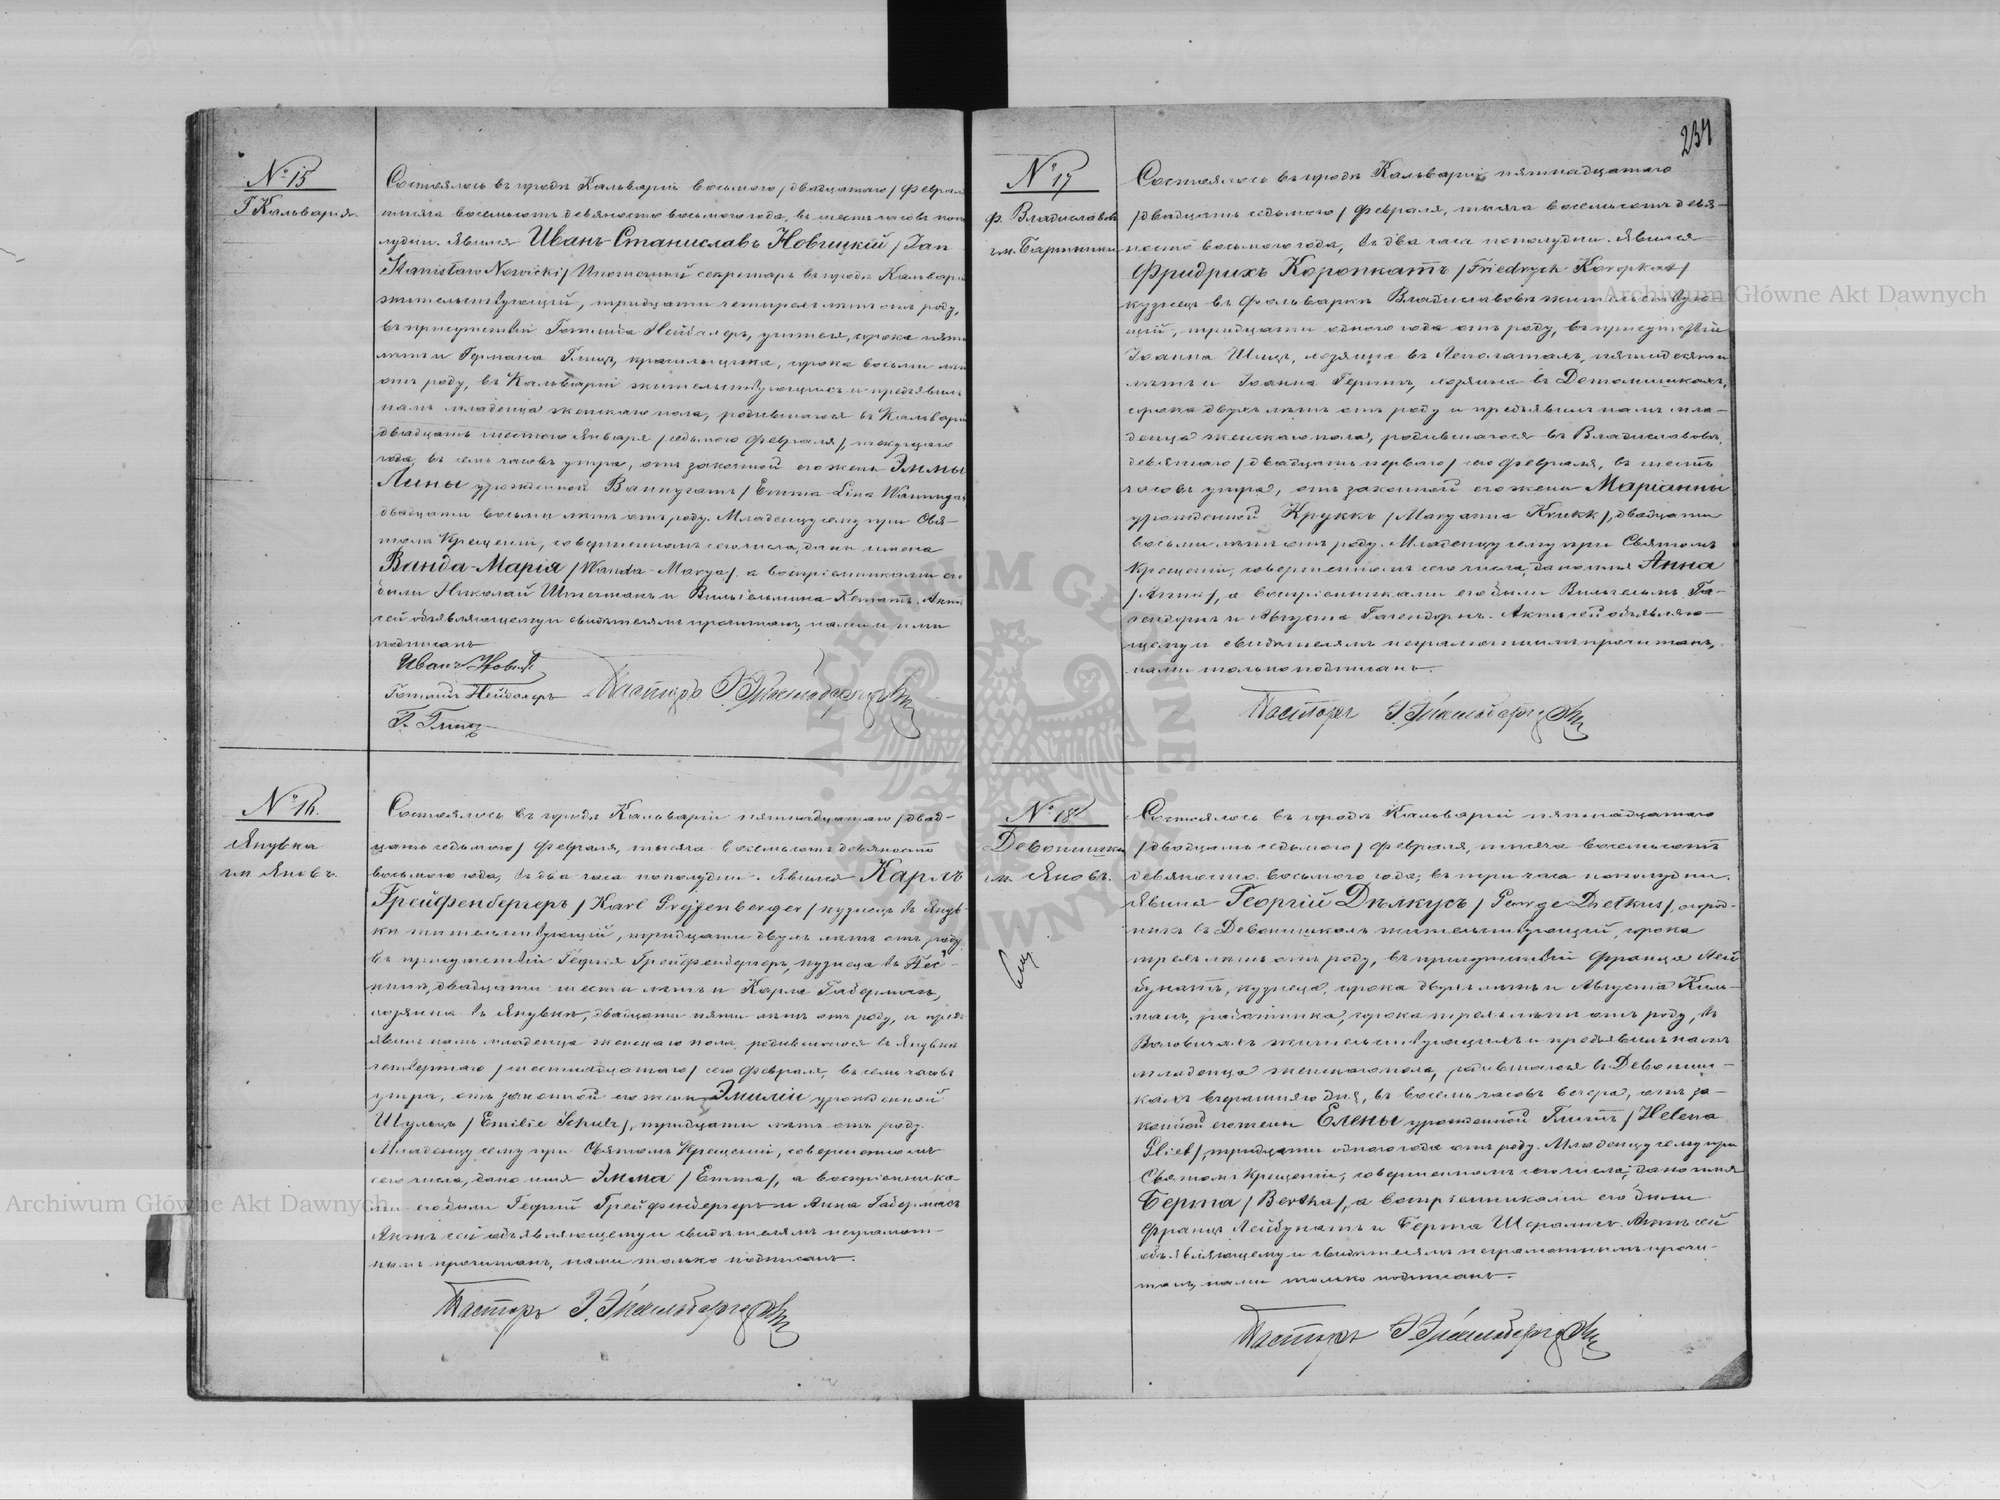 № 15
Г. Кальварія.
Состоялось въ городѣ Кальваріи восьмого /двадцатаго/ Феврал
тысяча восемьсотъ девяносто восьмого года, въ шесть часовъ попо
лудни. Явился Иванъ-Станиславъ Новицкій /Jan
Stanisław Nowicki/ Ипотечный секретарь въ городѣ Кальварі
жительствующій, тридцати четырехъ лѣтъ отъ роду,
въ присутствіи Готлиба Нейдалеръ, учителя, сорока пяти
лѣтъ и Германа Глицъ, красильщика, сорока восьми лѣ
отъ роду, въ Кальваріи жительствующихъ и предъявилъ
намъ младенца женскаго пола, родившагося въ Кальварі
двадцать шестого Января /седьмого Февраля/, текущаго
года, въ семь часовъ утра, отъ законной его жены Эммы
Лины урожденной Ваннугатъ /Emma-Lina Wannuga
двадцати восьми лѣтъ отъ роду. Младенцу сему при Свя-
томъ Крещеніи, совершенномъ сего числа, даны имена
Ванда-Марія /Wanda-Marya/ а воспріемниками ег
были Николай и Вильгельмина Актъ
сей объявляющему и свидѣтелямъ прочитанъ, нами и ими
подписанъ
Иванъ Новиц
Готлибъ Нейдалеръ Пасторъ
Г. Глицъ
№ 16.
Янувка
гм. Яновъ.
Состоялось въ городѣ Кальваріи пятнадцатаго /двад-
цать седьмого/ Февраля, тысяча восемьсотъ девяносто
восьмого года, въ два часа пополудни. Явился Карлъ
Грейфенбергеръ /Karl Grejfenberger/ кузнецъ въ Янув-
кѣ жительствующій, тридцати двухъ лѣтъ отъ роду,
въ присутствіи Георгія Грейфенбергеръ, кузнеца въ
двадцати шести лѣтъ и Карла Габерманъ,
хозяина въ Янувкѣ, двадцати пяти лѣтъ отъ роду, и предъ-
явилъ намъ младенца женскаго пола, родившагося въ Янувкѣ
четвертаго /шестнадцатаго/ сего Февраля, въ семь часовъ
утра, отъ законной его жены Эмиліи урожденной
Шульцъ /Emilie Schulz/, тридцати лѣтъ отъ роду.
Младенцу сему при Святомъ Крещеніи, совершенномъ
сего числа, дано имя Эмма /Emma/, а воспріемника-
ми его были Георгій Грейфенбергеръ и Анна Габерманъ
Актъ сей объявляющему и свидѣтелямъ неграмот-
нымъ прочитанъ, нами только подписанъ.
Пасторъ
237
№ 17
ф. Владиславовъ
гм. Бартники
Состоялось въ городѣ Кальваріи пятнадцатаго
/двадцать седьмого/ Февраля, тысяча восемьсотъ девя-
носто восьмого года, въ два часа пополудни. Явился
Фридрихъ Коропкатъ /Friedrych Koropkat/
кузнецъ въ фольваркѣ Владиславовѣ жительствую-
щій, тридцати одного года отъ роду, въ присутствіи
Іоанна Шицъ, хозяина въ пятидесяти
лѣтъ и Іоанна хозяина въ Детонишкахъ,
сорока двухъ лѣтъ отъ роду и предъявилъ намъ мла-
денца женскаго пола, родившагося въ Владиславовѣ,
девятаго /двадцать перваго/ сего Февраля, въ шесть
часовъ утра, отъ законной его жены Маріанны
урожденной Круккъ /Maryanna Krukk/, двадцати
восьми лѣтъ отъ роду. Младенцу сему при Святомъ
Крещеніи, совершенномъ сего числа, дано имя Анна
/Anna/, а воспріемниками его были Вильгельмъ Га-
гендорнъ и Августа Гагендорнъ. Актъ сей объявляю-
щему и свидѣтелямъ неграмотнымъ прочитанъ,
нами только подписанъ.
Пасторъ
№ 18
Девонишки
гм. Яновъ.
Состоялось въ городѣ Кальваріи пятнадцатаго
/двадцать седьмого/ Февраля, тысяча восемьсотъ
девяносто восьмого года, въ три часа пополудни.
Явился Георгій Дѣлкусъ /George Dietkus/, огород-
никъ въ Девонишкахъ жительствующій, сорока
трехъ лѣтъ отъ роду, въ присутствіи Франца Лей-
бунатъ, кузнеца, сорока двухъ лѣтъ и Августа Киль-
манъ, работника, сорока трехъ лѣтъ отъ роду, въ
жительствующихъ и предъявилъ намъ
младенца женскаго пола, родившагося въ Девониш-
кахъ вчерашняго дня, въ восемь часовъ вечера, отъ за-
конной его жены Елены урожденной Глитъ /Helena
Gliet/, тридцати одного года отъ роду. Младенцу сему при
Святомъ Крещеніи, совершенномъ сего числа, дано имя
Берта /Bertha/, а воспріемниками его были
Францъ Лейбунатъ и Берта Актъ сей
объявляющему и свидѣтелямъ неграмотнымъ прочи-
танъ, нами только подписанъ.
Пасторъ
Archiwum Główne Akt Dawnych
Archiwum Główne Akt Dawnych
ARCHIWUM GŁÓWNE AKT DAWNYCH